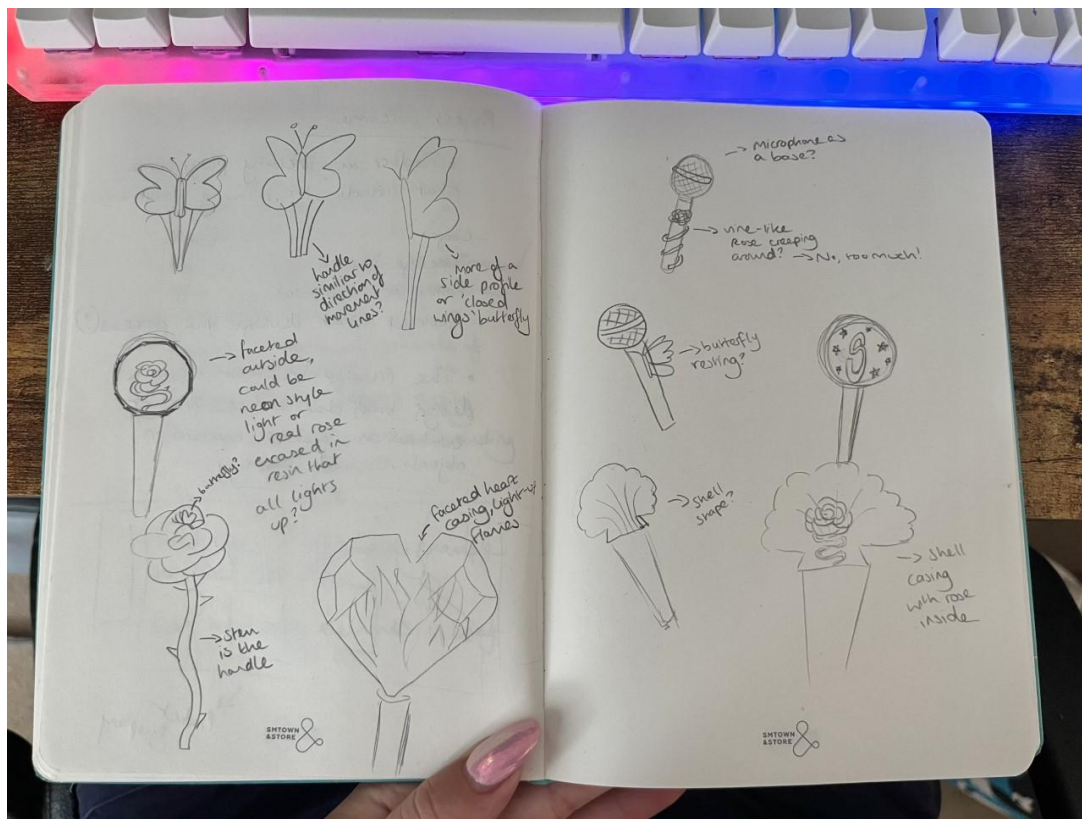 handle
similiar to
direction of
movement
lines?
more of a
side profile
or 'closed
wings' butterfly
faceted
outside,
could be
neon style
light or
real rose
encased in
resin that
all lights
up?
butterfly?
stem
is the
handle
faceted heart
casing, light-up
flames
SMTOWN
&STORE
Microphone as
a base?
vine-like
rose creeping
around? → No, too much!
butterfly
resting?
S
shell
shape?
shell
casing
with rose
inside
SMTOWN
&STORE